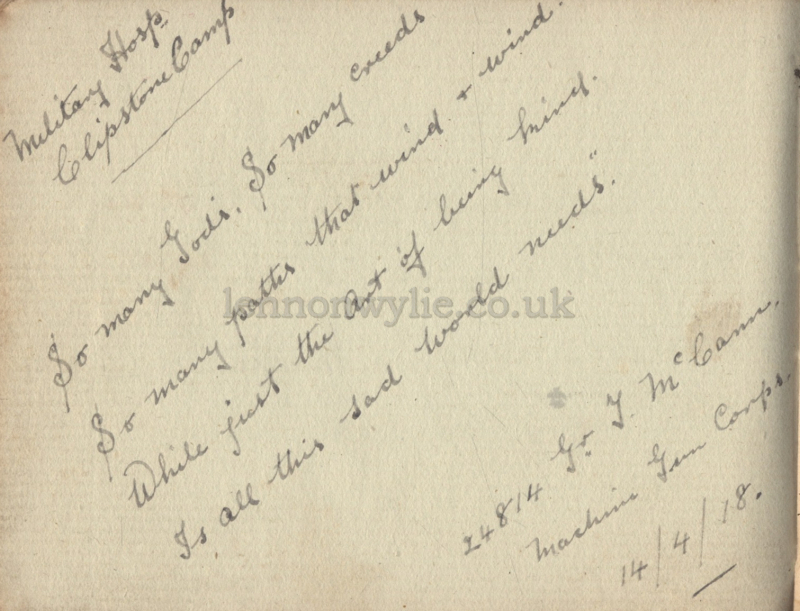 Military Hosp.
Clipstone Camp
So many Gods, So many creeds
So many paths that wind & wind.
While just the Art of being kind.
Is all this sad world needs".
lennonwylie.co.uk
24814 Gr. T. McCann.
Machine Gun Corps.
14/4/18.